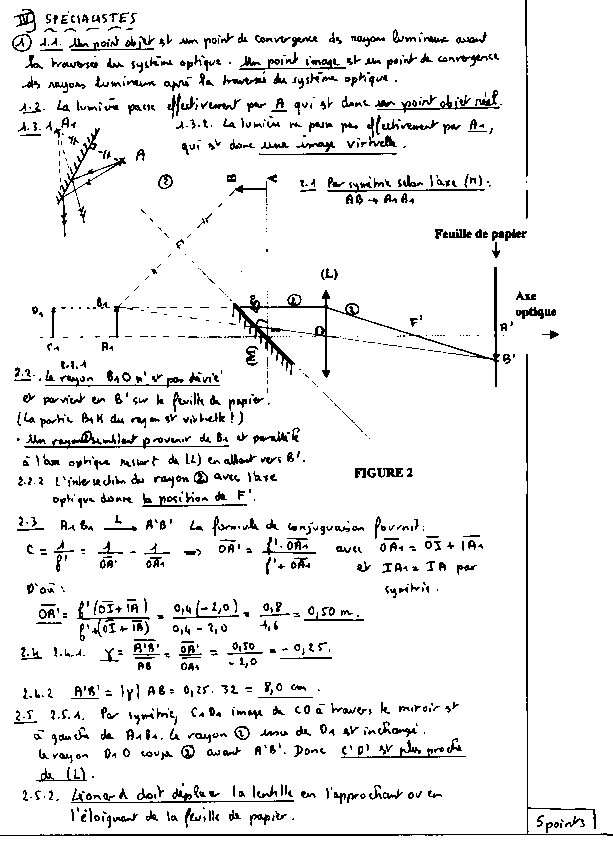 IV SPÉCIALISTES
① 1.1. Un point objet est un point de convergence des rayons lumineux avant
la traversée du système optique. Un point image est un point de convergence
des rayons lumineux après la traversée du système optique.
1.2. La lumière passe effectivement par A qui est donc un point objet réel.
1.3.1 A1
A
1.3.2. La lumière ne passe pas effectivement par A1,
qui est donc une image virtuelle.
②
B
A
2.1 Par symétrie selon l'axe (M):
AB → A1B1
Feuille de papier
(L)
Axe
optique
D1
B1
①
②
F'
A'
O
B'
C1
A1
(M)
2.2. 2.2.1 Le rayon B1O n'est pas dévié
et parvient en B' sur la feuille de papier.
(La partie B1K du rayon est virtuelle!)
• Un rayon ① semblant provenir de B1 et parallèle
à l'axe optique ressort de (L) en allant vers B'.
2.2.2 L'intersection du rayon ② avec l'axe
optique donne la position de F'.
FIGURE 2
2.3 A1B1 L→ A'B' La formule de conjugaison fournit:
C = 1/f' = 1/OA' - 1/OA1 ⇒ OA' = f'.OA1/f'+OA1 avec OA1 = OI + IA1
et IA1 = IA par
symétrie.
D'où:
OA' = f'(OI+IA)/f'+(OI+IA) = 0,4(-2,0)/0,4-2,0 = 0,8/1,6 = 0,50 m.
2.4 2.4.1. γ = A'B'/AB = OA'/OA1 = 0,50/-2,0 = -0,25.
2.4.2 A'B' = |γ| AB = 0,25. 32 = 8,0 cm.
2.5 2.5.1. Par symétrie, C1D1 image de CD à travers le miroir est
à gauche de A1B1. Le rayon ② issu de D1 est inchangé.
Le rayon D1O coupe ② avant A'B'. Donc C'D' est plus proche
de (L).
2.5.2. Léonard doit déplacer la lentille en l'approchant ou en
l'éloignant de la feuille de papier.
5 points